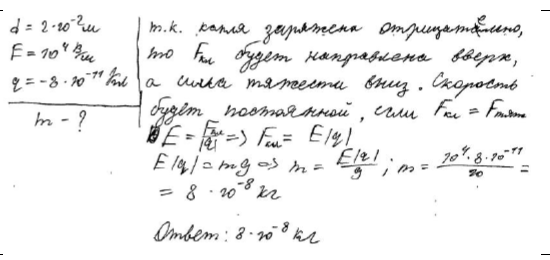 d = 2·10⁻² м
E = 10⁴ В/м
q = -8·10⁻¹¹ Кл
m - ?
т.к. капля заряжена отрицательно,
то Fкл будет направлена вверх,
а сила тяжести вниз. Скорость
будет постоянной, если Fкл = Fтяж
E = Fкл/|q| => Fкл = E|q|
E|q| = mg => m = E|q|/g ; m = 10⁴·8·10⁻¹¹/10 =
= 8·10⁻⁸ кг
Ответ: 8·10⁻⁸ кг